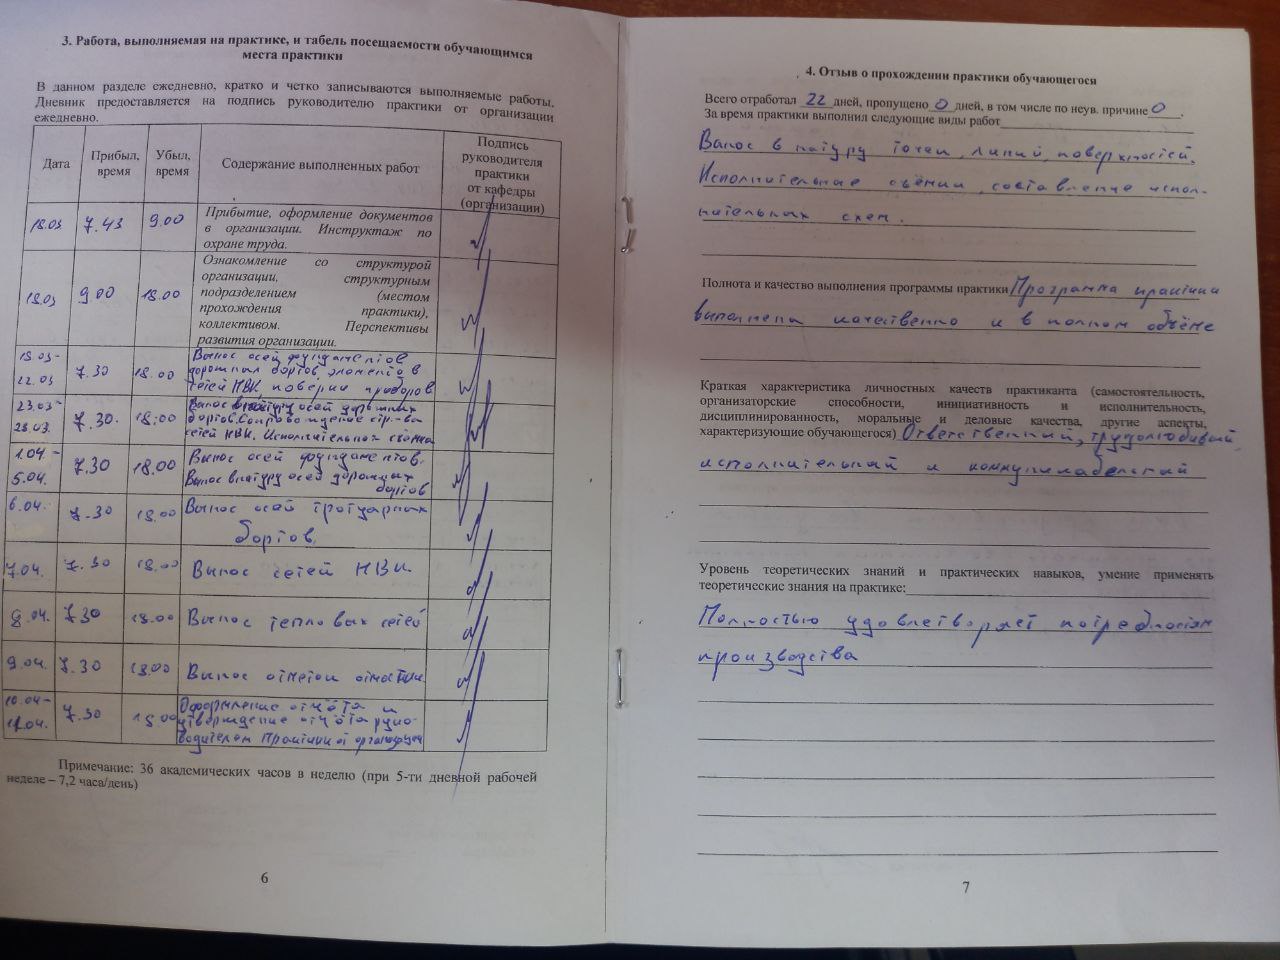 3. Работа, выполняемая на практике, и табель посещаемости обучающимся
места практики
В данном разделе ежедневно, кратко и четко записываются выполняемые работы.
Дневник предоставляется на подпись руководителю практики от организации
ежедневно.
Дата
Прибыл,
время
Убыл,
время
Содержание выполненных работ
Подпись
руководителя
практики
от кафедры
(организации)
18.03 7.43 9.00
Прибытие, оформление документов
в организации. Инструктаж по
охране труда.
18.03 9.00 18.00
Ознакомление со структурой
организации, структурным
подразделением (местом
прохождения практики),
коллективом. Перспективы
развития организации.
18.03-
22.03 7.30 18.00
Вынос осей фундаментов
дорожных бортов, элементов
сетей НВК, поверки приборов
23.03-
28.03. 7.30. 18:00
Вынос в натуру осей дорожных
бортов. Сопровождение стр-ва
сетей НВК. Исполнительная съёмка
1.04.-
5.04. 7.30 18.00
Вынос осей фундаментов.
Вынос в натуру осей дорожных
бортов
6.04. 7.30 18.00
Вынос осей тротуарных
бортов.
7.04. 7.30 18.00 Вынос сетей НВК.
8.04. 7.30 18.00 Вынос тепловых сетей
9.04. 7.30 18.00 Вынос отметок отмостки.
10.04-
7.30
Оформление отчёта и
утверждение отчёта руко-
водителем практики от организации
Примечание: 36 академических часов в неделю (при 5-ти дневной рабочей
неделе – 7,2 часа/день)
6
4. Отзыв о прохождении практики обучающегося
Всего отработал 22 дней, пропущено 0 дней, в том числе по неув. причине 0.
За время практики выполнил следующие виды работ
Вынос в натуру точек, линий, поверхностей.
Исполнительные съёмки, составление испол-
нительных схем.
Полнота и качество выполнения программы практики Программа практики
выполнена качественно и в полном объёме
Краткая характеристика личностных качеств практиканта (самостоятельность,
организаторские способности, инициативность и исполнительность,
дисциплинированность, моральные и деловые качества, другие аспекты,
характеризующие обучающегося) Ответственный, трудолюбивый,
исполнительный и коммуникабельный
Уровень теоретических знаний и практических навыков, умение применять
теоретические знания на практике:
Полностью удовлетворяет потребностям
производства
7